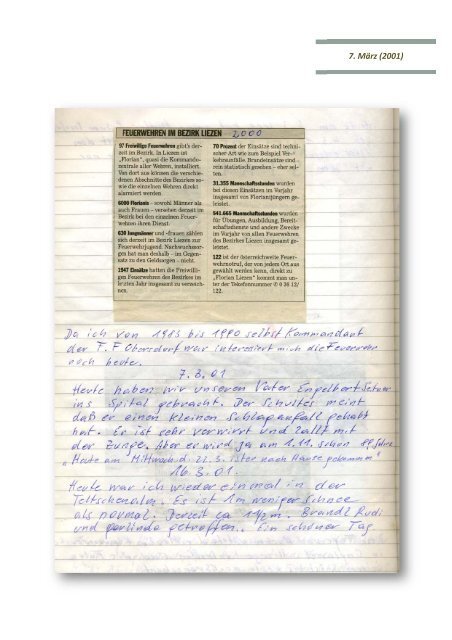 7. März (2001)
FEUERWEHREN IM BEZIRK LIEZEN 2000
97 Freiwillige Feuerwehren gibt's der-
zeit im Bezirk. In Liezen ist
„Florian", quasi die Kommando-
zentrale aller Wehren, installiert.
Von dort aus können die verschie-
denen Abschnitte des Bezirkes so-
wie die einzelnen Wehren direkt
alarmiert werden.
6000 Florianis – sowohl Männer als
auch Frauen – versehen derzeit im
Bezirk bei den einzelnen Feuer-
wehren ihren Dienst.
630 Jungmänner und -frauen zählen
sich derzeit im Bezirk Liezen zur
Feuerwehrjugend. Nachwuchssor-
gen hat man deshalb – im Gegen-
satz zu den Geldsorgen – nicht.
1947 Einsätze hatten die Freiwilli-
gen Feuerwehren des Bezirkes im
letzten Jahr insgesamt zu verzeich-
nen.
70 Prozent der Einsätze sind techni-
scher Art wie zum Beispiel Ver-
kehrsunfälle. Brandeinsätze sind –
rein statistisch gesehen – eher sel-
ten.
31.355 Mannschaftsstunden wurden
bei diesen Einsätzen im Vorjahr
insgesamt von Florianijüngern ge-
leistet.
541.665 Mannschaftsstunden wurden
für Übungen, Ausbildung, Bereit-
schaftsdienste und andere Zwecke
im Vorjahr von allen Feuerwehren
des Bezirkes Liezen insgesamt ge-
leistet.
122 ist der österreichweite Feuer-
wehrnotruf, der von jedem Ort aus
gewählt werden kann, direkt zu
„Florian Liezen" kommt man un-
ter der Telefonnummer 0 36 12/
122.
Da ich von 1983 bis 1990 selbst Kommandant
der F.F Obersdorf war interessiert mich die Feuerwehr
noch heute.
7.3.01
Heute haben wir unseren Vater Engelbert
ins Spital gebracht. Der Schultes meint
daß er einen kleinen Schlaganfall gehabt
hat. Er ist sehr verwirrt und lallt mit
der Zunge. Aber er wird ja am 1.11. schon 89 Jahre
„Heute am Mittwoch d. 21.3. ist er nach Hause gekommen"
16.3.01.
Heute war ich wieder einmal in der
Teltschenalm. Es ist 1m weniger Schnee
als normal. Derzeit ca Brandl Rudi
und Gerlinde getroffen. Ein schöner Tag